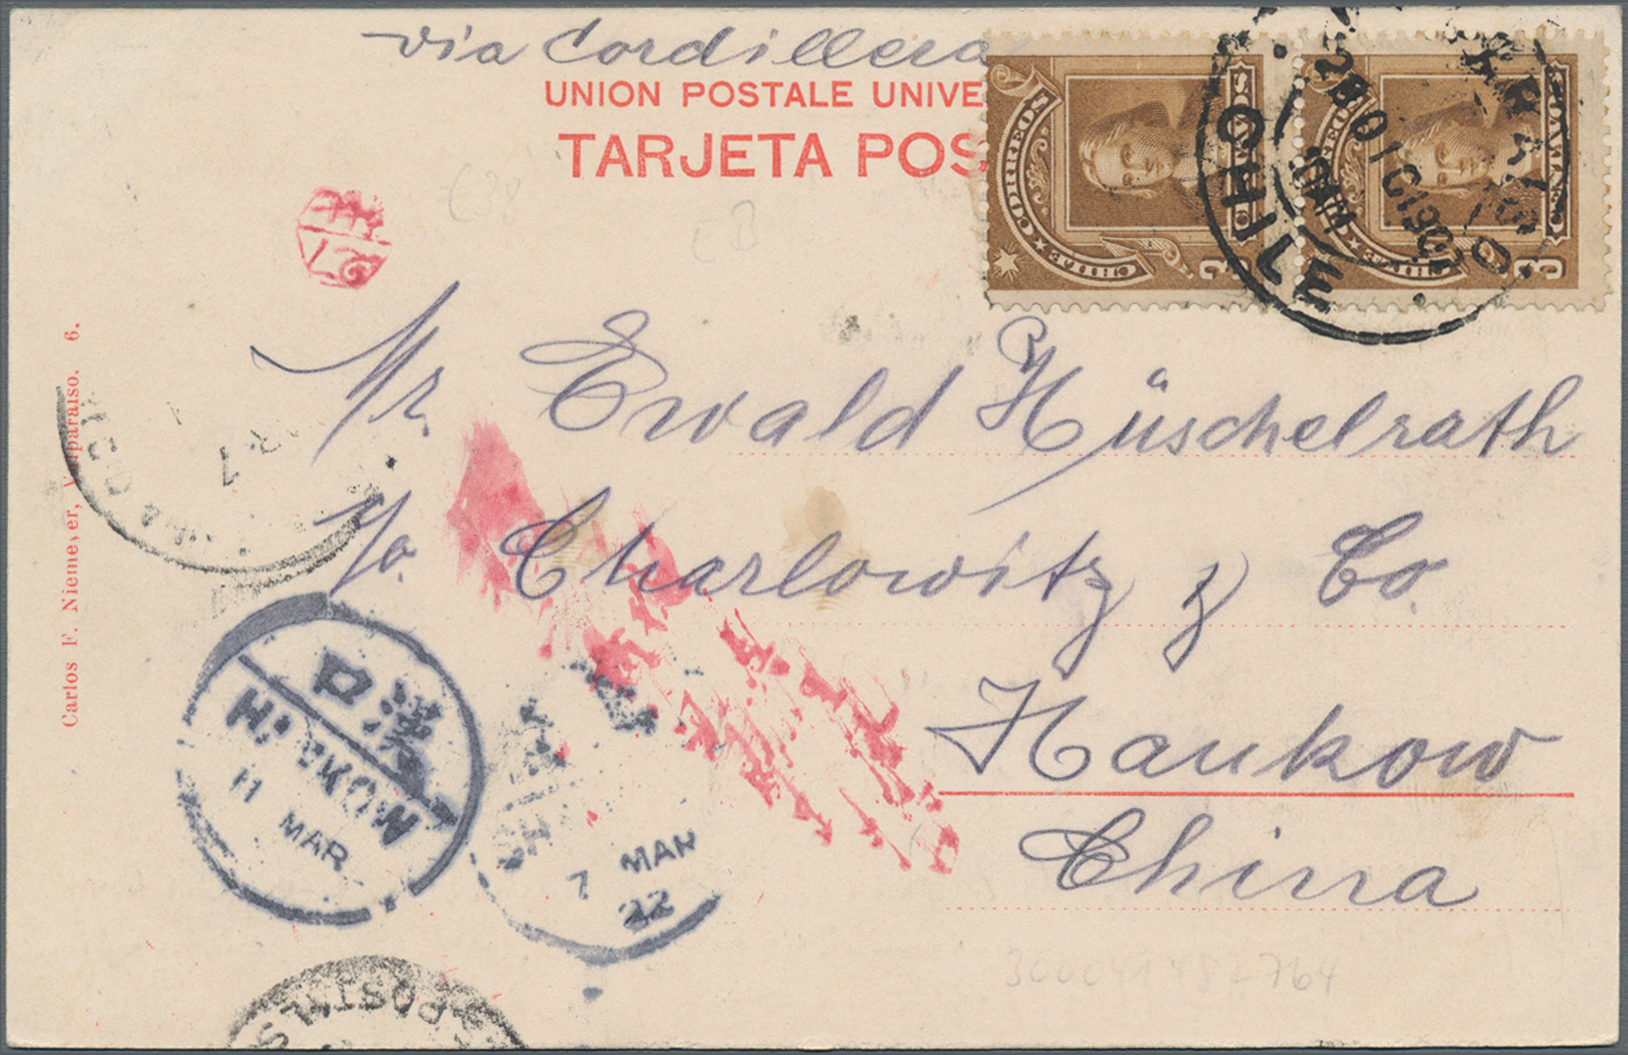 via Cordillera
UNION POSTALE UNIVE
TARJETA POS
CORREOS
CHILE
3
3
CHILE
Mr. Ewald Hüschelrath
c/o. Charlowitz & Co.
Hankow
China
Carlos F. Niemeyer, Valparaiso. 6.
漢口
HANKOW
11
MAR
7 MAR
22
POSTAL
300041482764